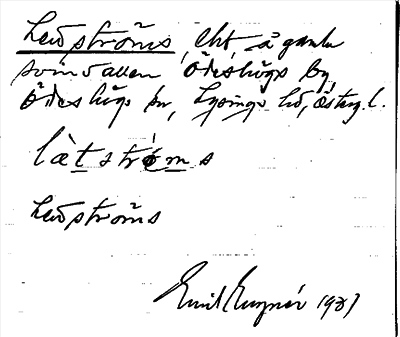 Ledströms, lht, å gamla
svinvallen Ödeshögs by,
Ödeshögs sn, Lysings hd, Österg. l.
lètstróms
Ledströms
Emil 1937